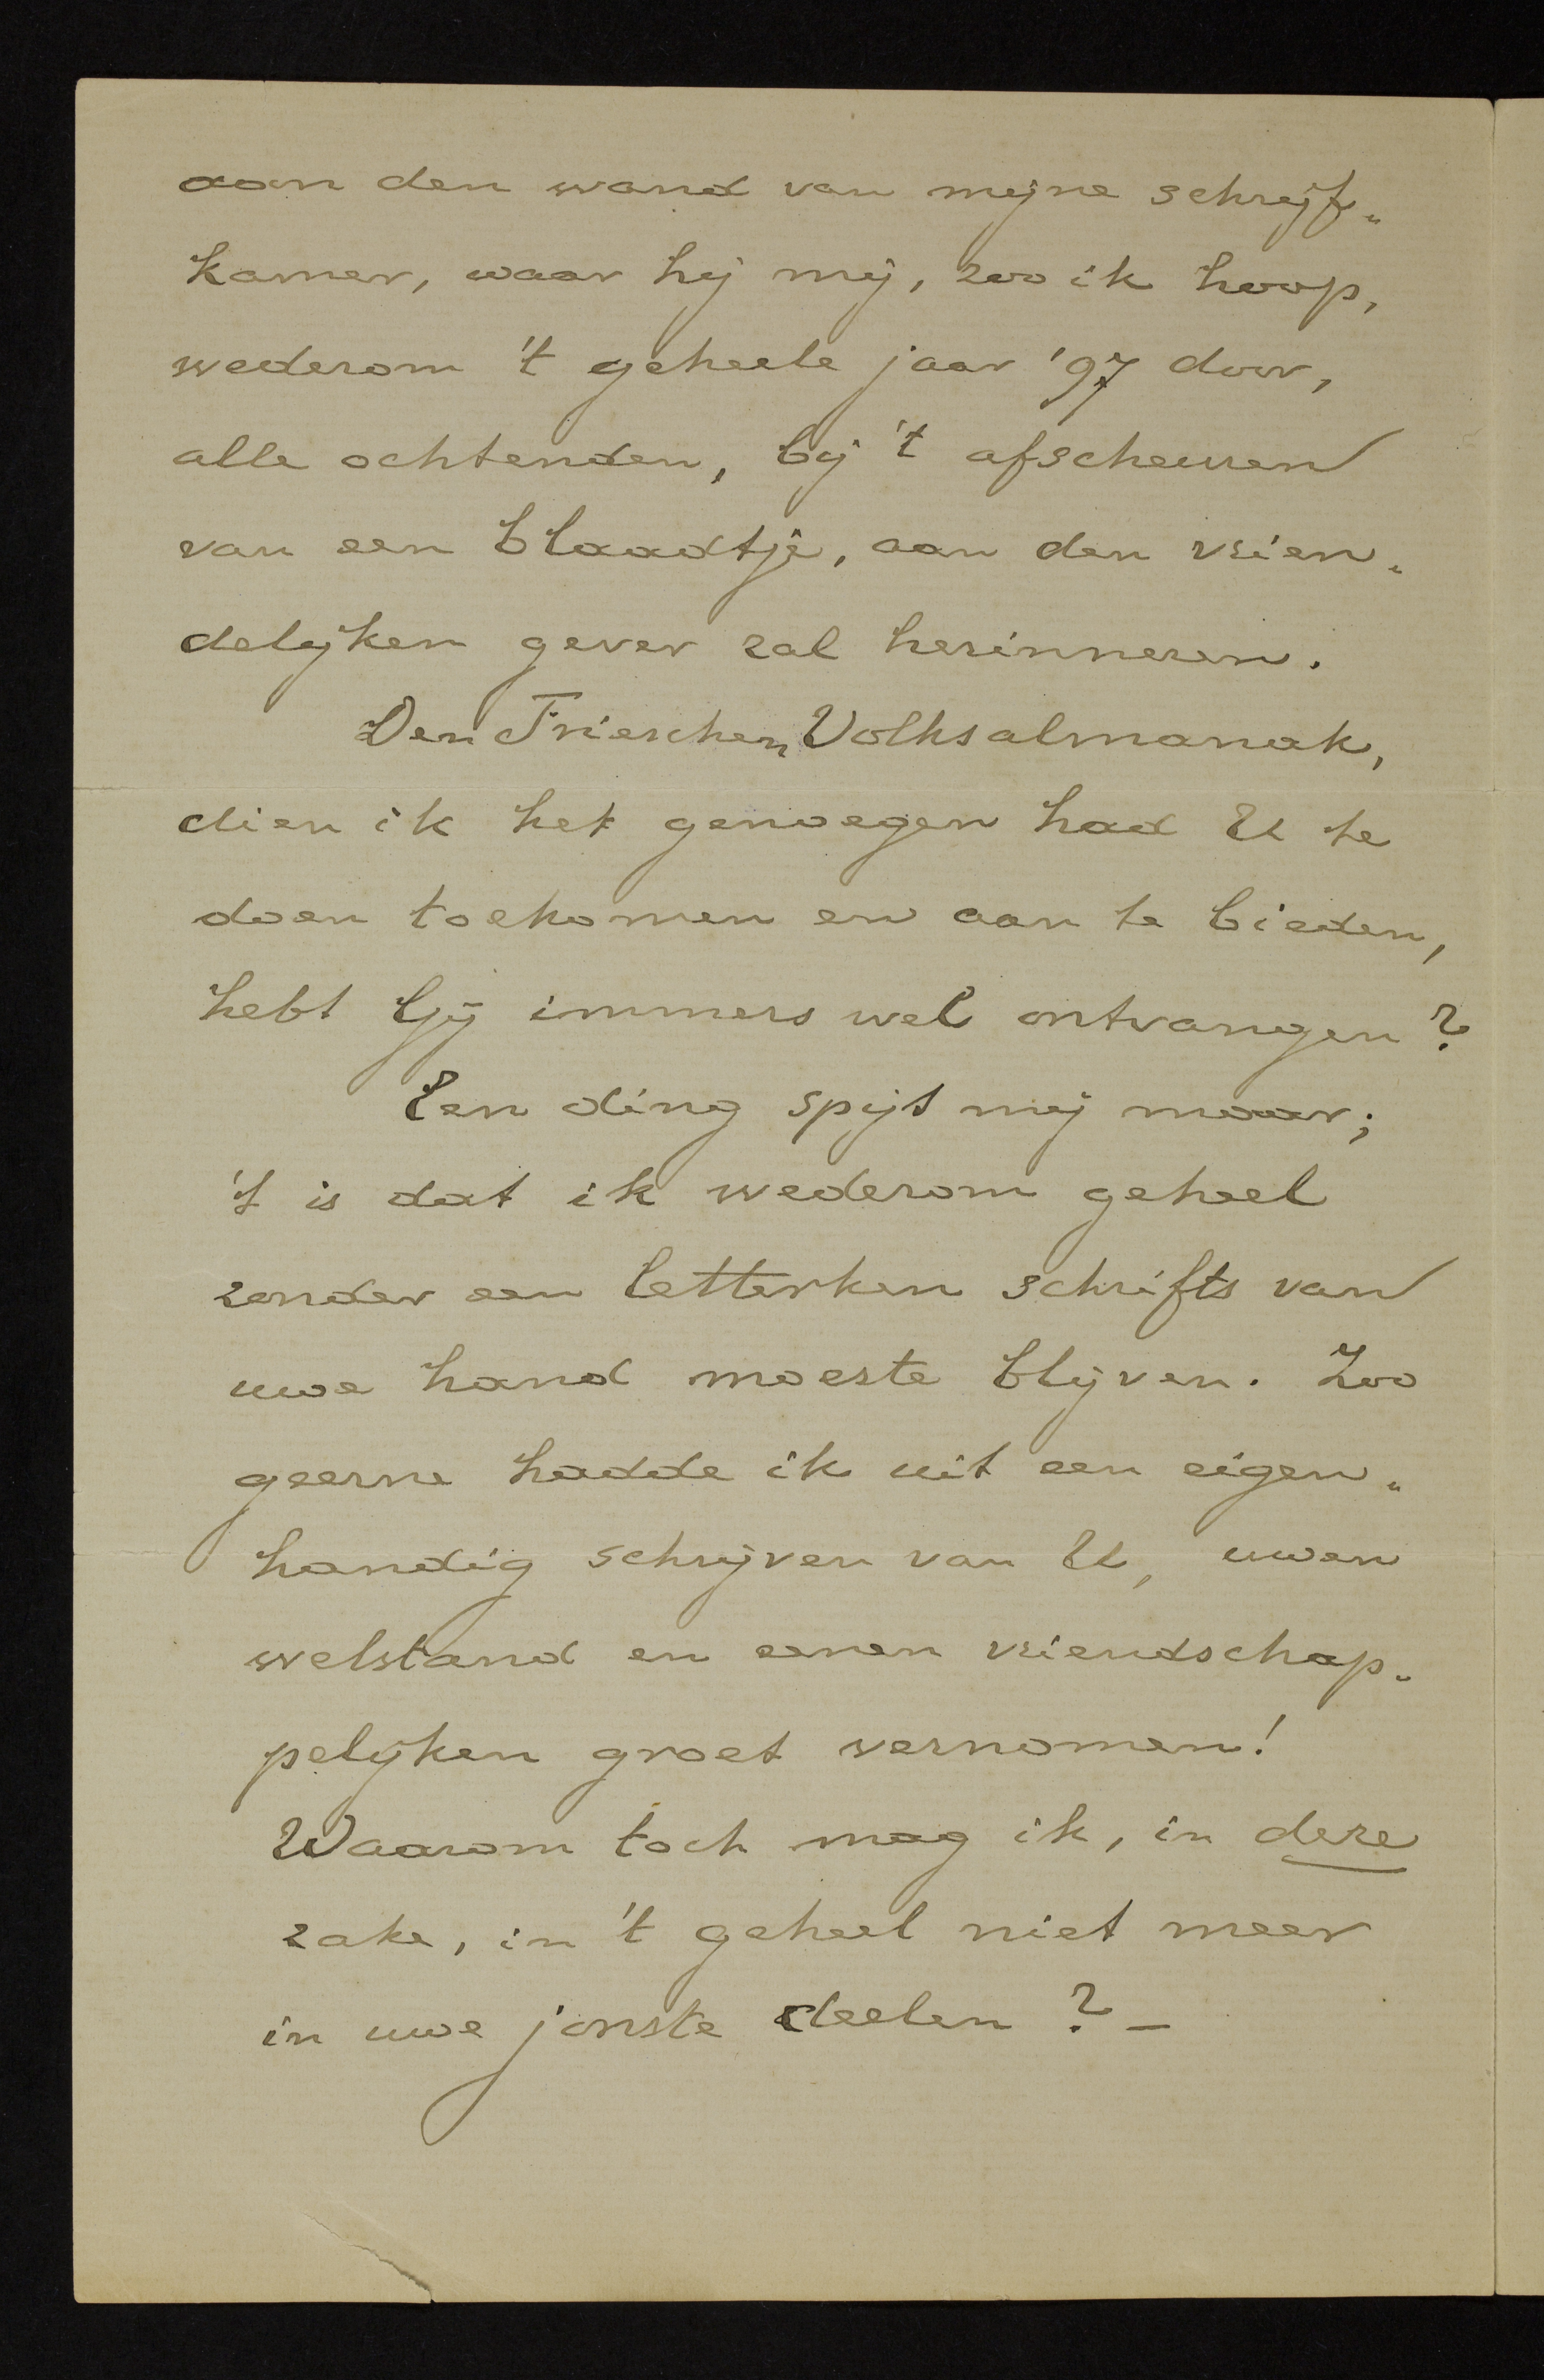 aan den wand van mijne schrijf„
kamer, waar hij mij, zoo ik hoop,
wederom 't geheele jaar '97 door,
alle ochtenden, bij 't afscheuren
van een blaadtje, aan den vrien„
delijken gever zal herinneren.
Den Frieschen Volksalmanak,
dien ik het genoegen had U te
doen toekomen en aan te bieden,
hebt Gij immers wel ontvangen?
Een ding spijt mij maar;
't is dat ik wederom geheel
zonder een letterken schrifts van
uwe hand moeste blijven. Zoo
geerne hadde ik uit een eigen„
handig schrijven van U, uwen
welstand en eenen vriendschap„
pelijken groet vernomen!
Waarom toch mag ik, in deze
zake, in 't geheel niet meer
in uwe jonste deelen? –